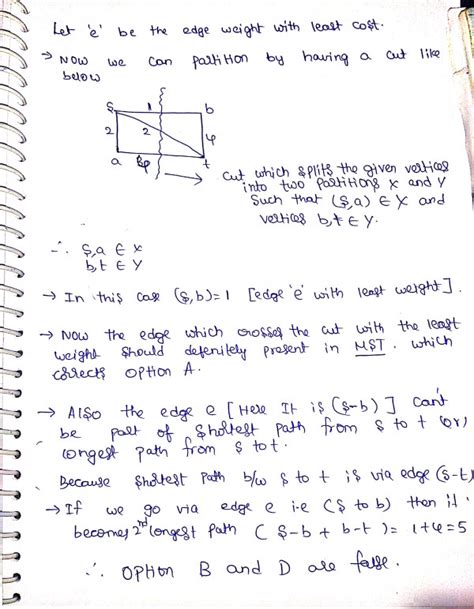 Let 'e' be the edge weight with least cost.
→ Now we can partition by having a cut like
below
S 1 b
2 2 4
a t
Cut which splits the given vertices
into two partitions X and Y
Such that (S,a) ∈ X and
vertices b,t ∈ Y.
∴ S,a ∈ X
b,t ∈ Y
→ In this case (S,b)=1 [edge 'e' with least weight].
→ Now the edge which crosses the cut with the least
weight should defenitely present in MST. which
corrects option A.
→ Also the edge e [Here It is (S-b)] can't
be part of Shortest path from S to t (or)
longest path from S to t.
Because shortest path b/w S to t is via edge (S-t)
→ If we go via edge e i.e (S to b) then it
becomes 2nd longest path (S-b + b-t) = 1+4=5
∴ Option B and D are false.